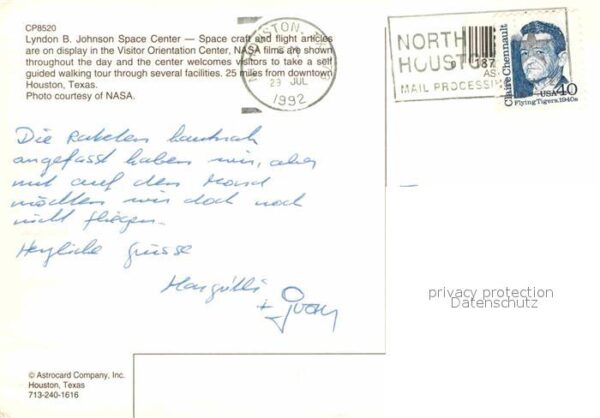 CP8520
Lyndon B. Johnson Space Center — Space craft and flight articles
are on display in the Visitor Orientation Center, NASA films are shown
throughout the day and the center welcomes visitors to take a self
guided walking tour through several facilities. 25 miles from downtown
Houston, Texas.
Photo courtesy of NASA.
29 JUL
1992
NORTH
HOUSTON
MAIL PROCESSIN
Claire Chennault
USA 40
Flying Tigers, 1940s
Die Raketen hautnah
angefasst haben wir, aber
mit auf den Mond
möchten wir doch noch
nicht fliegen.
Herzliche Grüsse
+
privacy protection
Datenschutz
© Astrocard Company, Inc.
Houston, Texas
713-240-1616